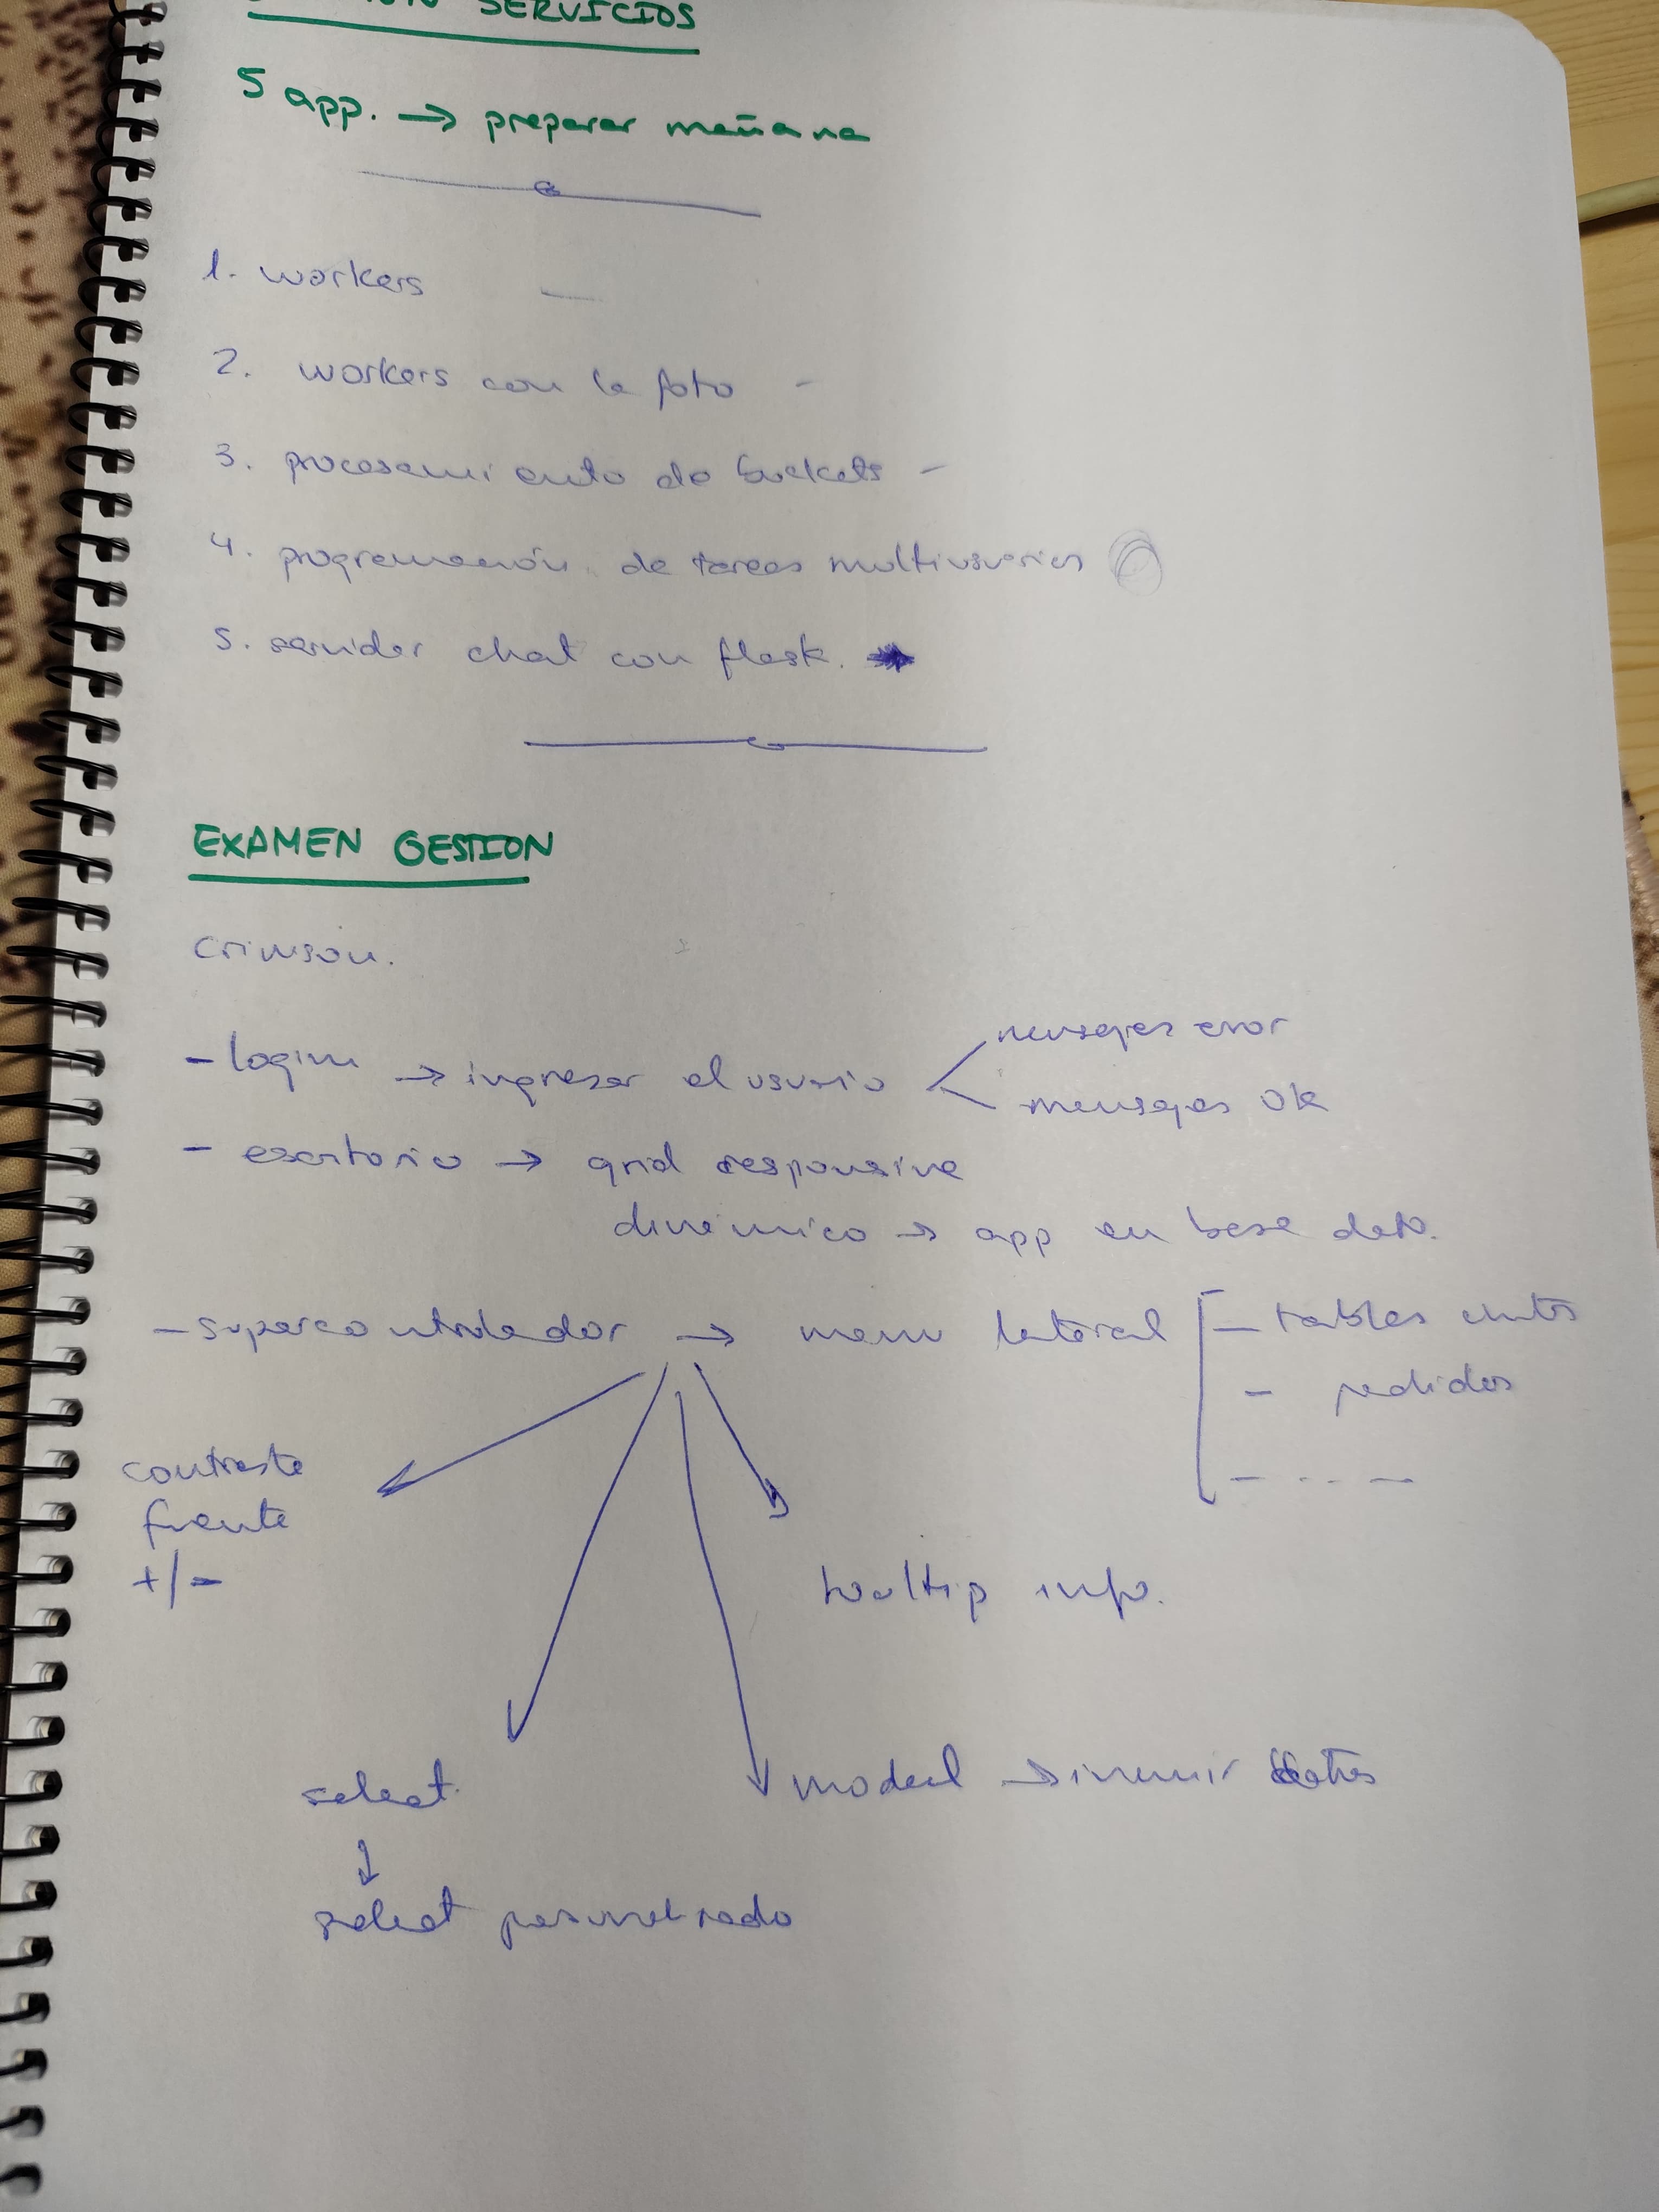 SERVICIOS
5 app. → preparar mañana
1. workers —
2. workers con la foto -
3. procesamiento de buckets -
4. programación de tareas multiusuarios
5. servidor chat con flask.
EXAMEN GESTION
crimson.
- login → ingresar el usuario
mensajes error
mensajes ok
- escritorio → grid responsive
dinámico → app en base dato.
- supercontrolador → menu lateral
- tablas
- pedidos
- - - -
contraste
fuente
+/-
tooltip info.
select
modal →
↓
select